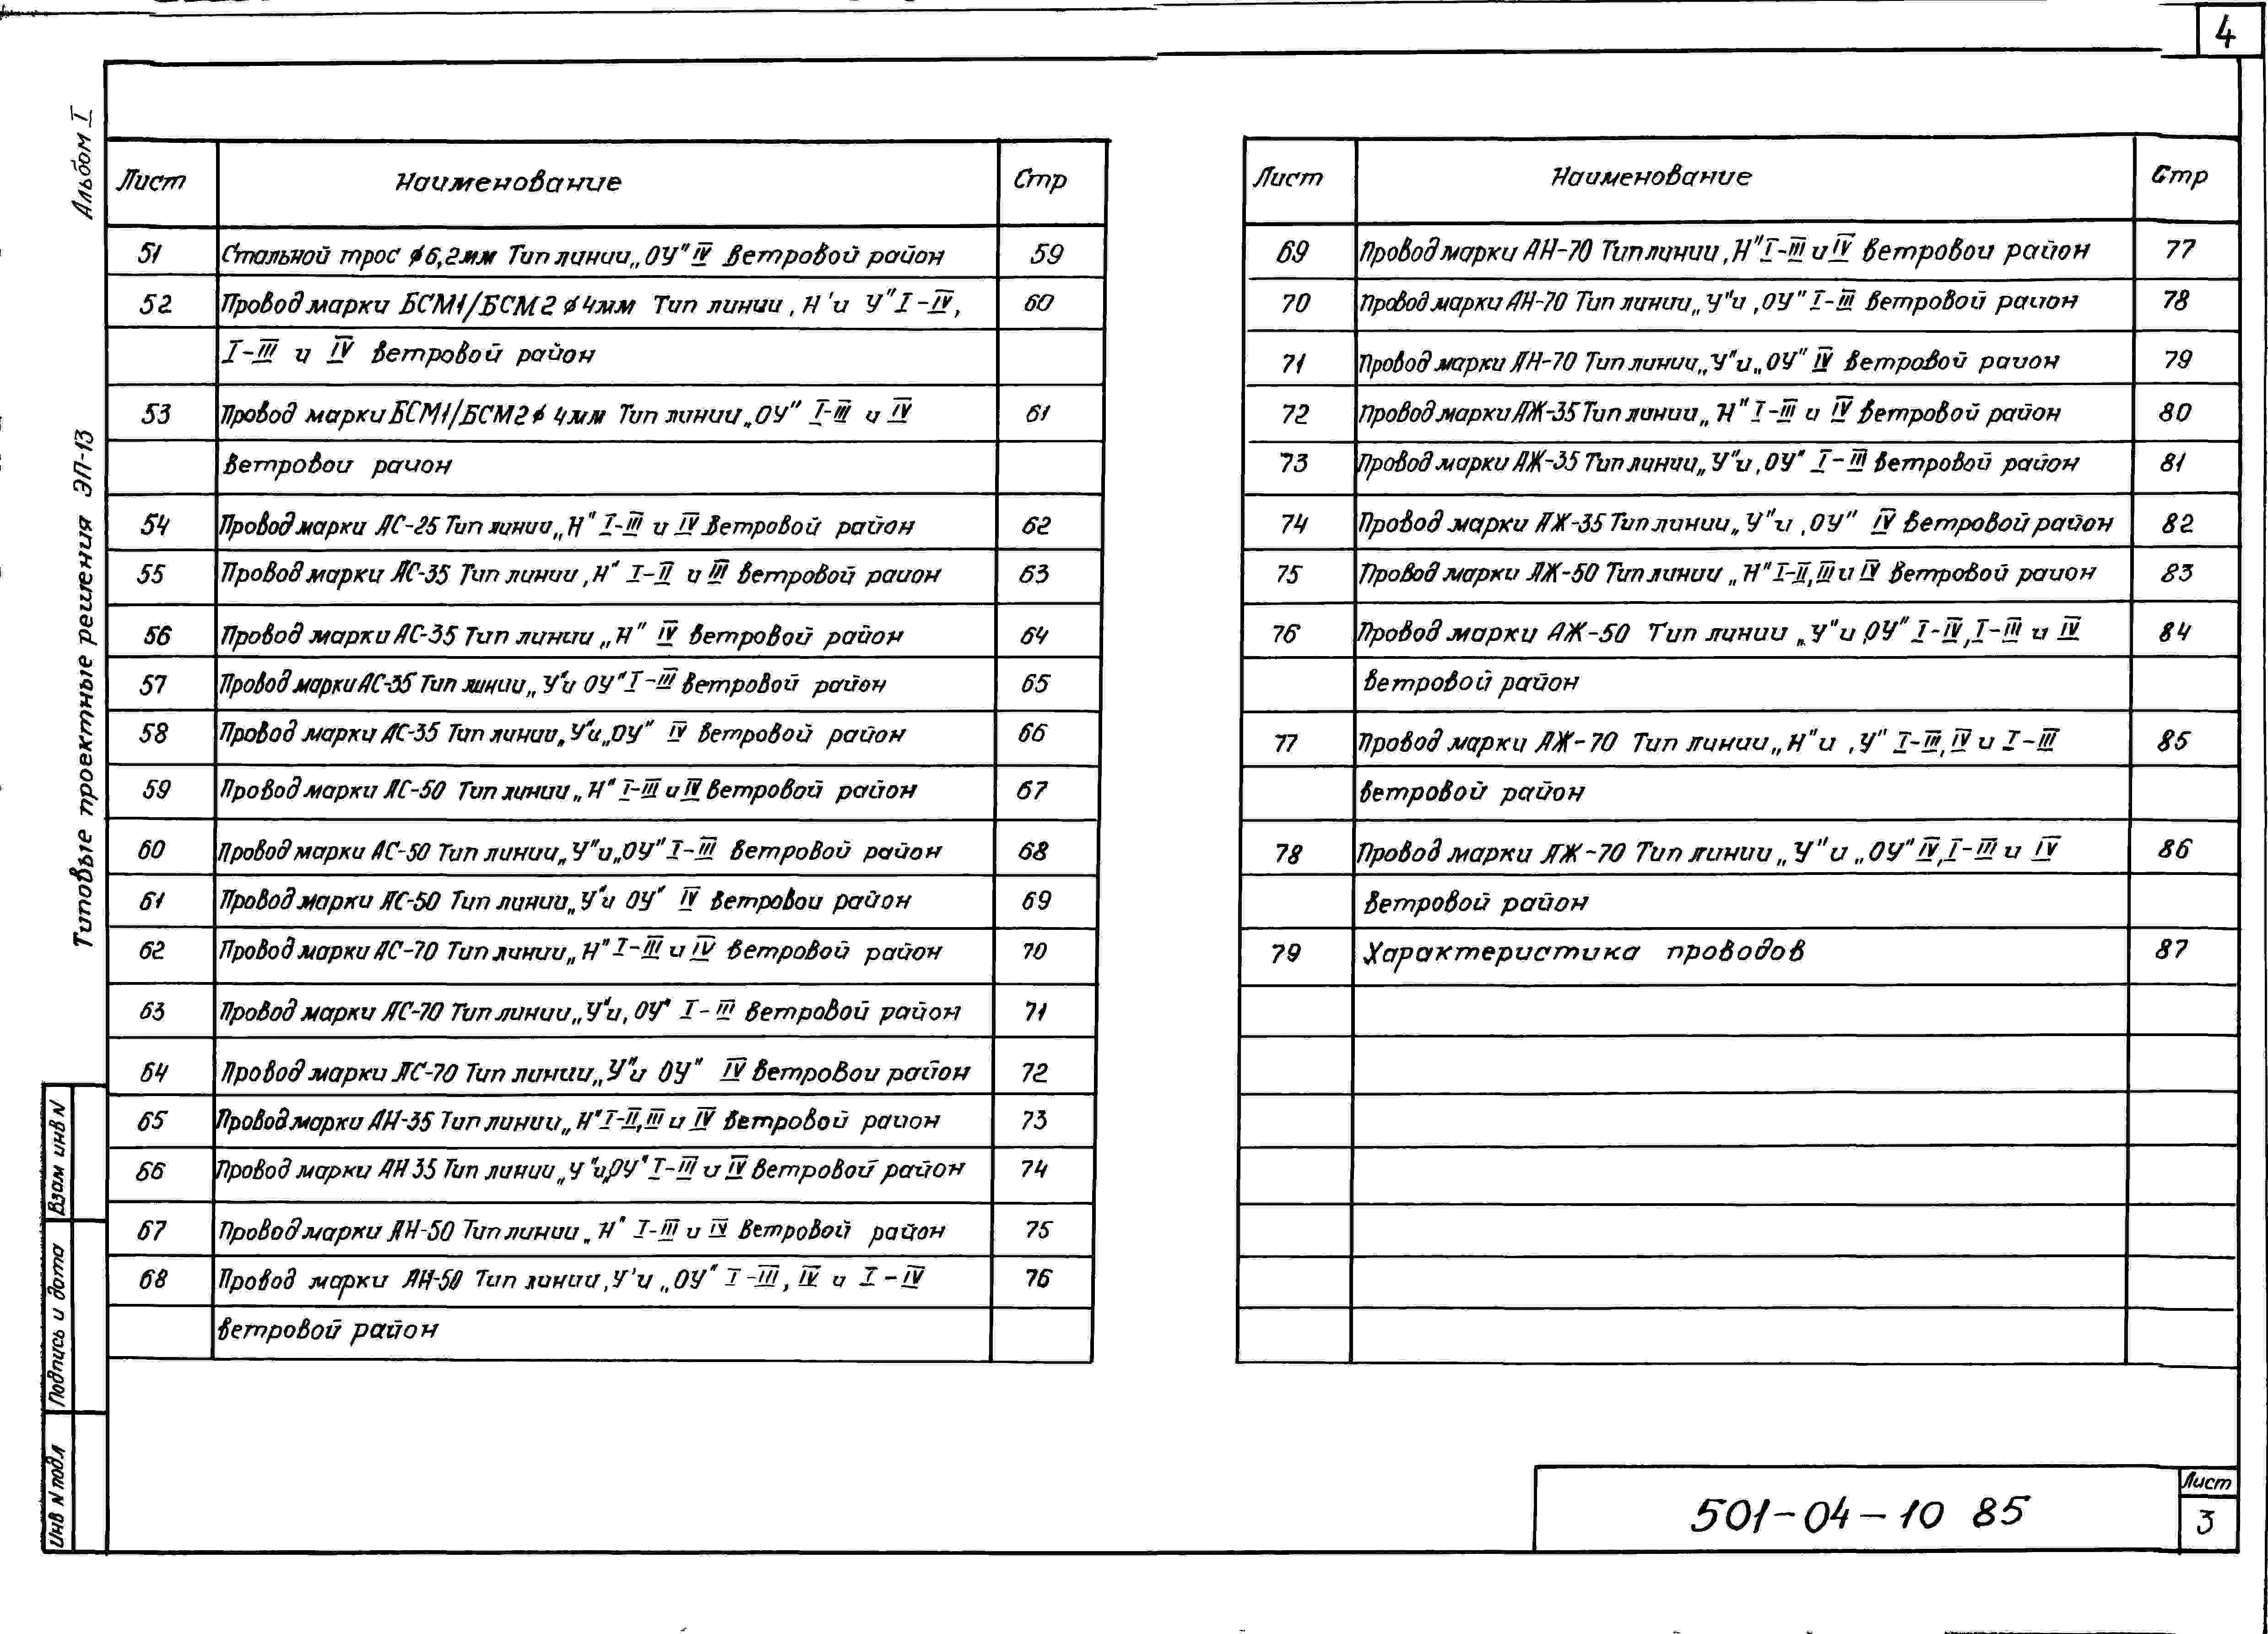 4
Альбом I
Типовые проектные решения ЭП-13
Лист Наименование Стр
51 Стальной трос ϕ6,2мм Тип линии „ОУ" IV ветровой район 59
52 Провод марки БСМ1/БСМ2 ϕ4мм Тип линии ‚Н' и У" I-IV, 60
I-III и IV ветровой район
53 Провод марки БСМ1/БСМ2 ϕ 4мм Тип линии „ОУ" I-III и IV 61
ветровой район
54 Провод марки АС-25 Тип линии „Н" I-III и IV ветровой район 62
55 Провод марки АС-35 Тип линии ‚Н" I-II и III ветровой район 63
56 Провод марки АС-35 Тип линии „Н" IV ветровой район 64
57 Провод марки АС-35 Тип линии „У"и ОУ" I-III ветровой район 65
58 Провод марки АС-35 Тип линии „У"и „ОУ" IV ветровой район 66
59 Провод марки АС-50 Тип линии „Н" I-III и IV ветровой район 67
60 Провод марки АС-50 Тип линии „У"и „ОУ" I-III ветровой район 68
61 Провод марки АС-50 Тип линии „У"и ОУ" IV ветровой район 69
62 Провод марки АС-70 Тип линии „Н" I-III и IV ветровой район 70
63 Провод марки АС-70 Тип линии „У"и ‚ОУ" I-III ветровой район 71
64 Провод марки АС-70 Тип линии „У"и ОУ" IV ветровой район 72
65 Провод марки АН-35 Тип линии „Н" I-II, III и IV ветровой район 73
66 Провод марки АН 35 Тип линии „У"и „ОУ" I-III и IV ветровой район 74
67 Провод марки АН-50 Тип линии „Н" I-III и IV ветровой район 75
68 Провод марки АН-50 Тип линии ‚У'и „ОУ" I-III, IV и I-IV 76
ветровой район
Лист Наименование Стр
69 Провод марки АН-70 Тип линии ‚Н" I-III и IV ветровой район 77
70 Провод марки АН-70 Тип линии „У"и ‚ОУ" I-III ветровой район 78
71 Провод марки АН-70 Тип линии „У"и „ОУ" IV ветровой район 79
72 Провод марки АЖ-35 Тип линии „Н" I-III и IV ветровой район 80
73 Провод марки АЖ-35 Тип линии „У"и ‚ОУ" I-III ветровой район 81
74 Провод марки АЖ-35 Тип линии „У"и ‚ОУ" IV ветровой район 82
75 Провод марки АЖ-50 Тип линии „Н" I-II, III и IV ветровой район 83
76 Провод марки АЖ-50 Тип линии „У"и ‚ОУ" I-IV, I-III и IV 84
ветровой район
77 Провод марки АЖ-70 Тип линии „Н"и ‚У" I-III, IV и I-III 85
ветровой район
78 Провод марки АЖ-70 Тип линии „У"и „ОУ" IV, I-III и IV 86
ветровой район
79 Характеристика проводов 87
Взам инв N
Подпись и дата
Инв N подл
501-04-10 85
Лист
3